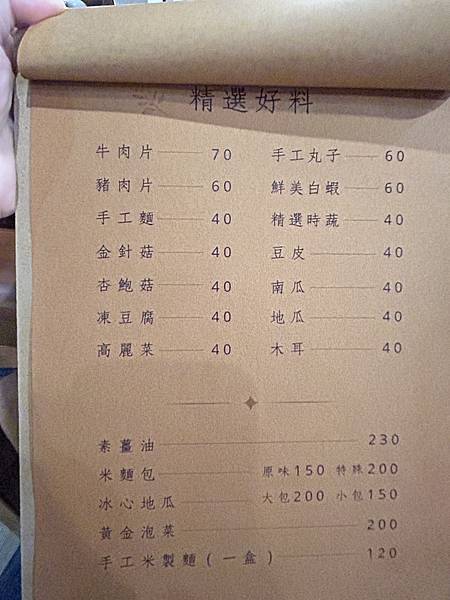 精選好料
牛肉片 70 手工丸子 60
豬肉片 60 鮮美白蝦 60
手工麵 40 精選時蔬 40
金針菇 40 豆皮 40
杏鮑菇 40 南瓜 40
凍豆腐 40 地瓜 40
高麗菜 40 木耳 40
素薑油 230
米麵包 原味150 特殊200
冰心地瓜 大包200 小包150
黃金泡菜 200
手工米製麵(一盒) 120